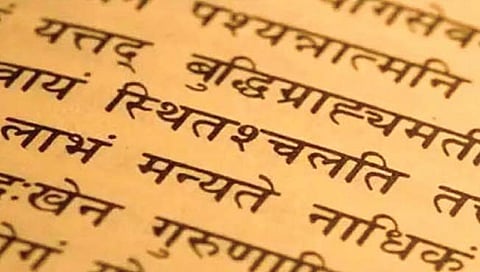 पश्यन्नात्मनि
यत्तद् बुद्धिग्राह्यमती
वायं स्थितश्चलति
लाभं मन्यते नाधिकं
ःखेन गुरुणा